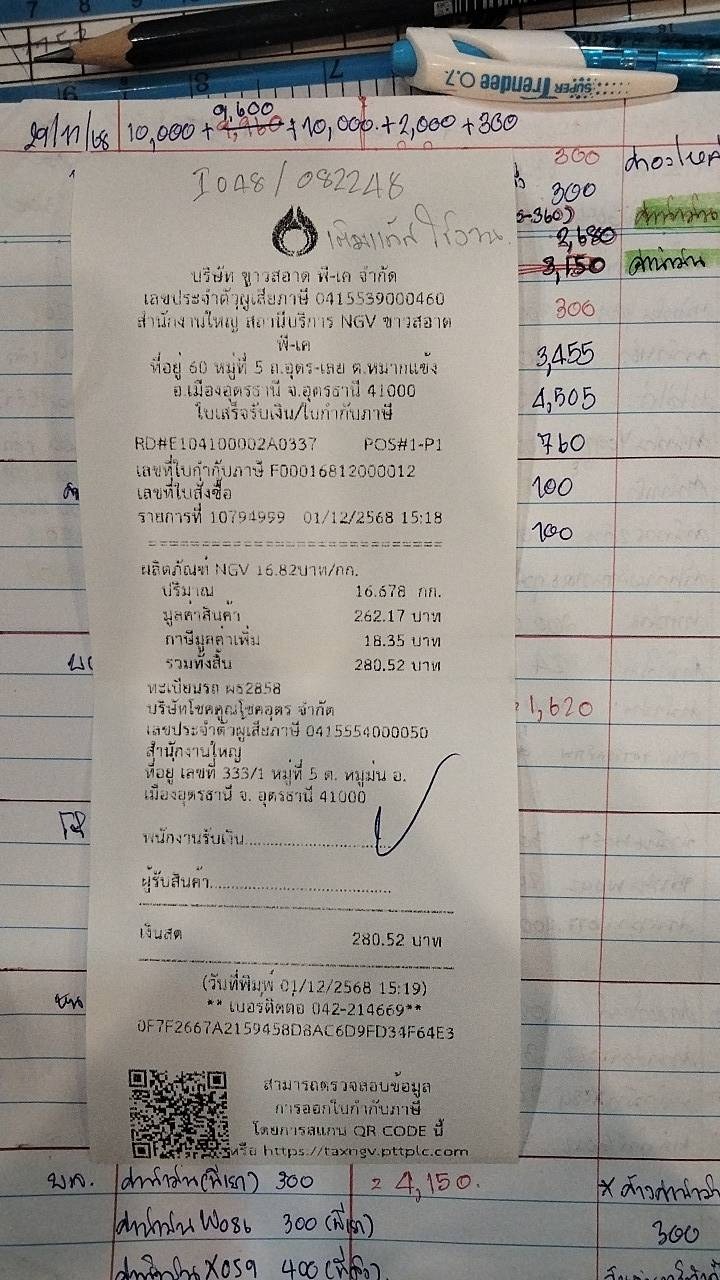 SUPER Trendee 0.7
29/11/68 10,000 + 9,960 + 10,000 + 2,000 + 300
9,600
300
300
2,680
3,150
ค่าน้ำมัน
300
3,455
4,505
760
100
100
1,620
I048/082248
บริษัท ขาวสอาด พี-เค จำกัด
เลขประจำตัวผู้เสียภาษี 0415539000460
สำนักงานใหญ่ สถานีบริการ NGV ขาวสอาด
พี-เค
ที่อยู่ 60 หมู่ที่ 5 ถ.อุดร-เลย ต.หมากแข้ง
อ.เมืองอุดรธานี จ.อุดรธานี 41000
ใบเสร็จรับเงิน/ใบกำกับภาษี
RD#E104100002A0337 POS#1-P1
เลขที่ใบกำกับภาษี F00016812000012
เลขที่ใบสั่งซื้อ
รายการที่ 10794999 01/12/2568 15:18
ผลิตภัณฑ์ NGV 16.82บาท/กก.
ปริมาณ 16.678 กก.
มูลค่าสินค้า 262.17 บาท
ภาษีมูลค่าเพิ่ม 18.35 บาท
รวมทั้งสิ้น 280.52 บาท
ทะเบียนรถ ผธ2858
บริษัทโชคคูณโชคอุดร จำกัด
เลขประจำตัวผู้เสียภาษี 0415554000050
สำนักงานใหญ่
ที่อยู่ เลขที่ 333/1 หมู่ที่ 5 ต. หมูม่น อ.
เมืองอุดรธานี จ. อุดรธานี 41000
พนักงานรับเงิน........................
ผู้รับสินค้า.............................
เงินสด 280.52 บาท
(วันที่พิมพ์ 01/12/2568 15:19)
** เบอร์ติดต่อ 042-214669**
0F7F2667A2159458D8AC6D9FD34F64E3
สามารถตรวจสอบข้อมูล
การออกใบกำกับภาษี
โดยการสแกน QR CODE นี้
หรือ https://taxngv.pttplc.com
ค่าน้ำมัน(พี่เยา) 300 = 4,150.
ค่าน้ำมัน W086 300 (พี่เยา)
300
ค่าน้ำมัน X059 400